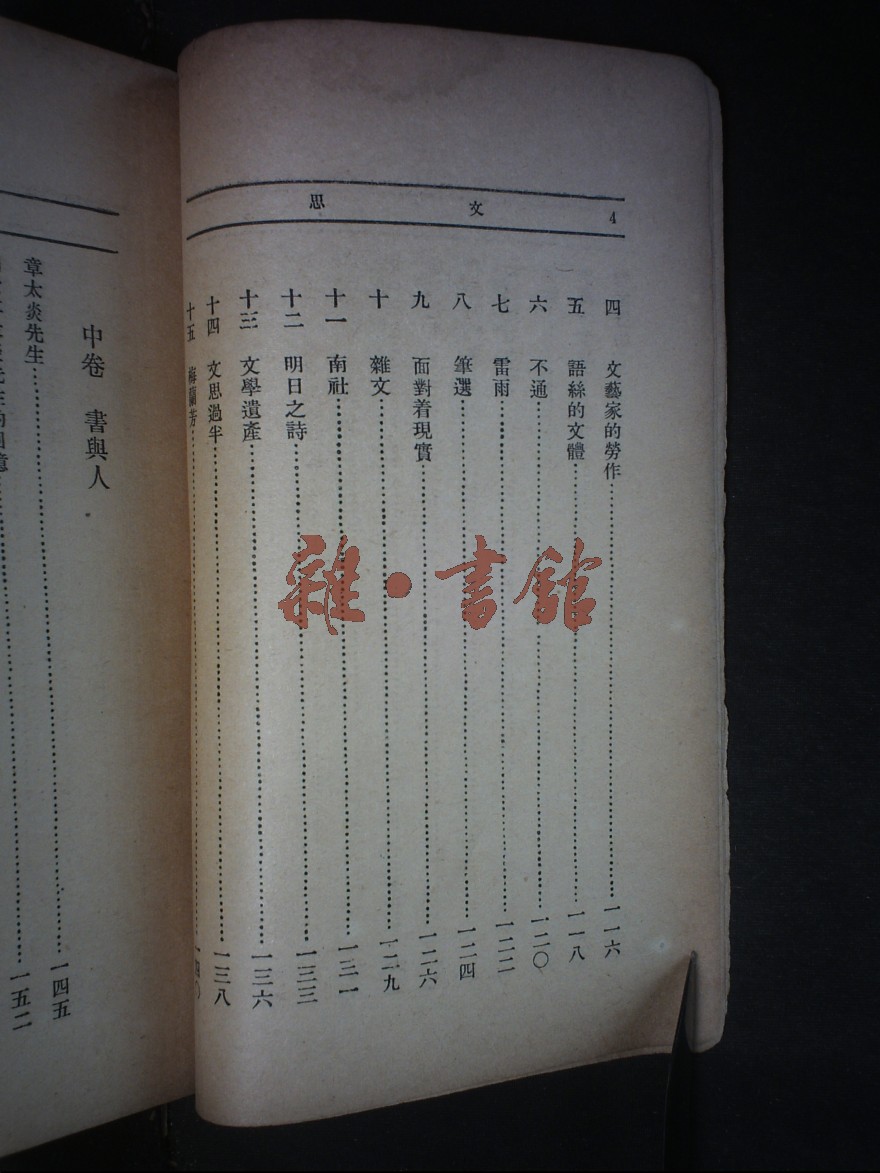 文思
4
四 文藝家的勞作 一一六
五 語絲的文體 一一八
六 不通 一二〇
七 雷雨 一二二
八 筆選 一二四
九 面對着現實 一二六
十 雜文 一二九
十一 南社 一三一
十二 明日之詩 一三三
十三 文學遺產 一三六
十四 文思過半 一三八
十五 梅蘭芳 一四〇
中卷 書與人
章太炎先生 一四五
一五二
雜·書館